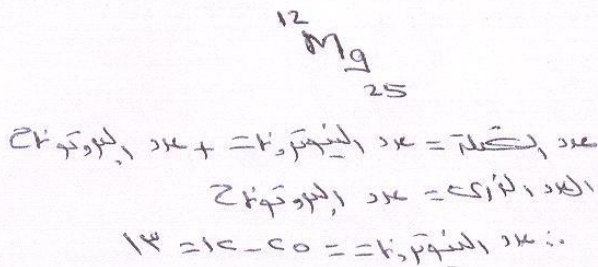 12
Mg
25
عدد الكتلة = عدد النيوترونات + عدد البروتونات
العدد الذرى = عدد البروتونات
∴ عدد النيوترونات = ٢٥ - ١٢ = ١٣